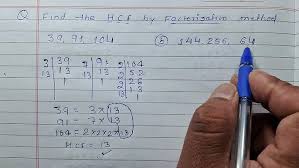 Q Find the HCF by Factorization method.
39, 91, 104 (b) 144, 256, 64
3 39 7 91 2 104
13 13 13 13 2 52
1 1 2 26
13 13
1
39 = 3 × 13
91 = 7 × 13
104 = 2×2×2×13
HCF = 13